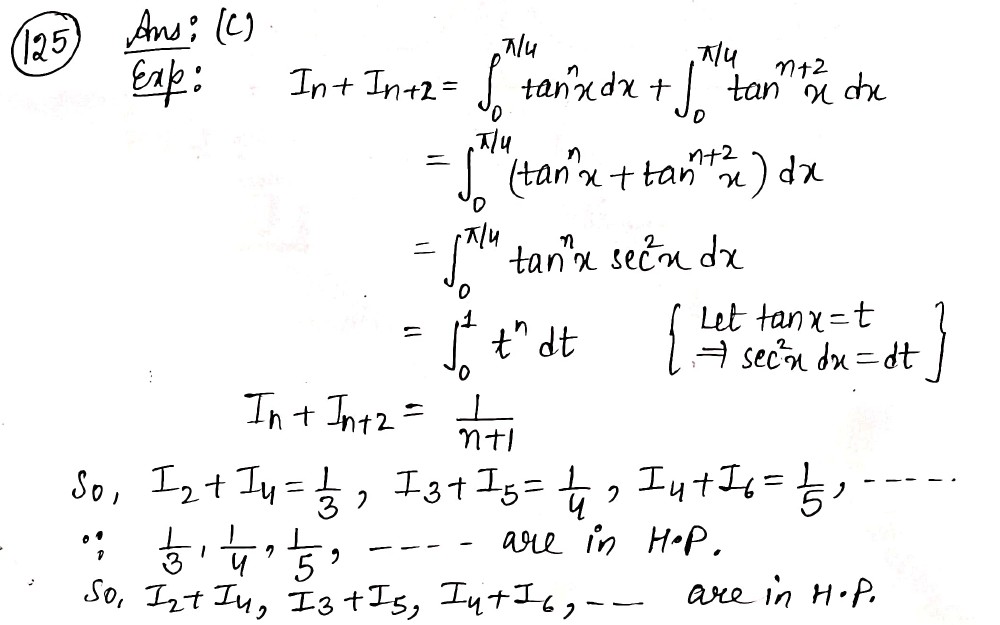 (125) Ans: (C)
Exp: Iₙ + Iₙ₊₂ = ∫₀^{π/4} tanⁿx dx + ∫₀^{π/4} tanⁿ⁺²x dx
= ∫₀^{π/4} (tanⁿx + tanⁿ⁺²x) dx
= ∫₀^{π/4} tanⁿx sec²x dx
= ∫₀¹ tⁿ dt { Let tanx = t
⇒ sec²x dx = dt }
Iₙ + Iₙ₊₂ = 1/(n+1)
So, I₂ + I₄ = 1/3, I₃ + I₅ = 1/4, I₄ + I₆ = 1/5, -----
∵ 1/3, 1/4, 1/5, ---- are in H.P.
So, I₂ + I₄, I₃ + I₅, I₄ + I₆, -- are in H.P.